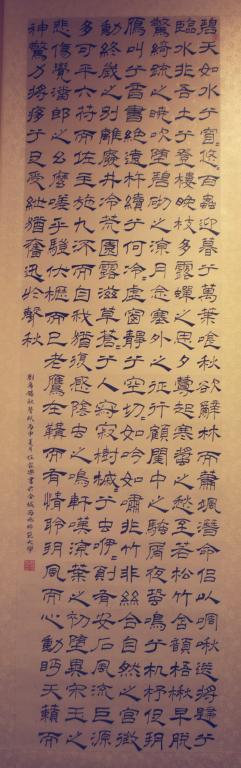 碧天如水兮窅=悠=百蟲迎暮兮萬葉吟秋欲辭林而蕭颯潛命侶以啁啾送將歸兮
臨水非吾土兮登樓晚枝多露蟬之思夕草起寒螀之愁至若松竹含韻梧楸早脫
驚綺疏之曉吹墮碧砌之涼月念塞外之征行顧閨中之騷屑夜蛩鳴兮機杼促朔
雁叫兮音書絕遠杵續兮何泠=虛窗靜兮空切=如吟如嘯非竹非絲合自然之宮徵
動終歲之別離廢井冷荒園露滋草蒼=兮人寂=樹槭=兮蟲咿=則有安石風流巨源
多可平六符而佐主施九流而自我猶復感陰蟲之鳴軒嘆涼葉之初墮異宋玉之
悲傷覺潘郎之幺麼嗟乎驥伏櫪而已老鷹在鞲而有情聆朔風而心動眄天籟而
神驚力將痑兮足受紲猶奮迅於聲秋
劉禹錫秋聲賦丙申夏月任家樂書於金城西北師範大學